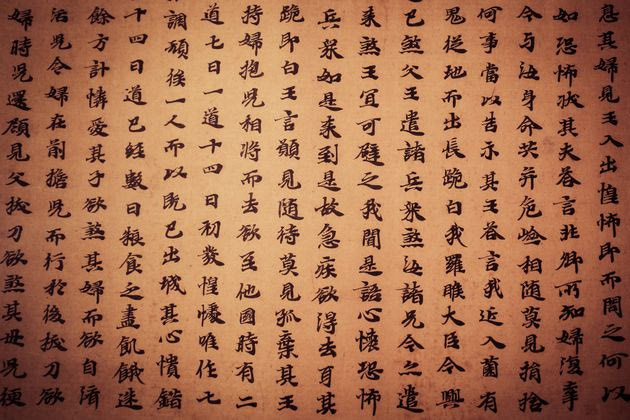 息其婦見王入出惶怖即而問之何以
如恐怖狀其夫答言非卿所知婦復牽
今与汝身命共并危嶮相随莫見捐捨
何事當以告示其王答言我近入薗有
鬼從地而出長跪白我羅睺大臣今興
已煞父王遣諸兵衆煞汝諸兄今之遣
来煞王宜可避之我聞是語心懷恐怖
兵衆如是来到是故急疾欲得去耳其
跪即白王言願見随侍莫見孤棄其王
持婦抱兒相將而去欲至他國時有二
道七日一道十四日初發惶懅唯作七
調頓後一人而以既已出城其心憒錯
十四日道已經數日粮食之盡飢餓迷
餘方計憐愛其子欲煞其婦而欲自濟
活兒令婦在前擔兒而行於後拔刀欲
婦時兒還顧見父拔刀欲煞其母兒便